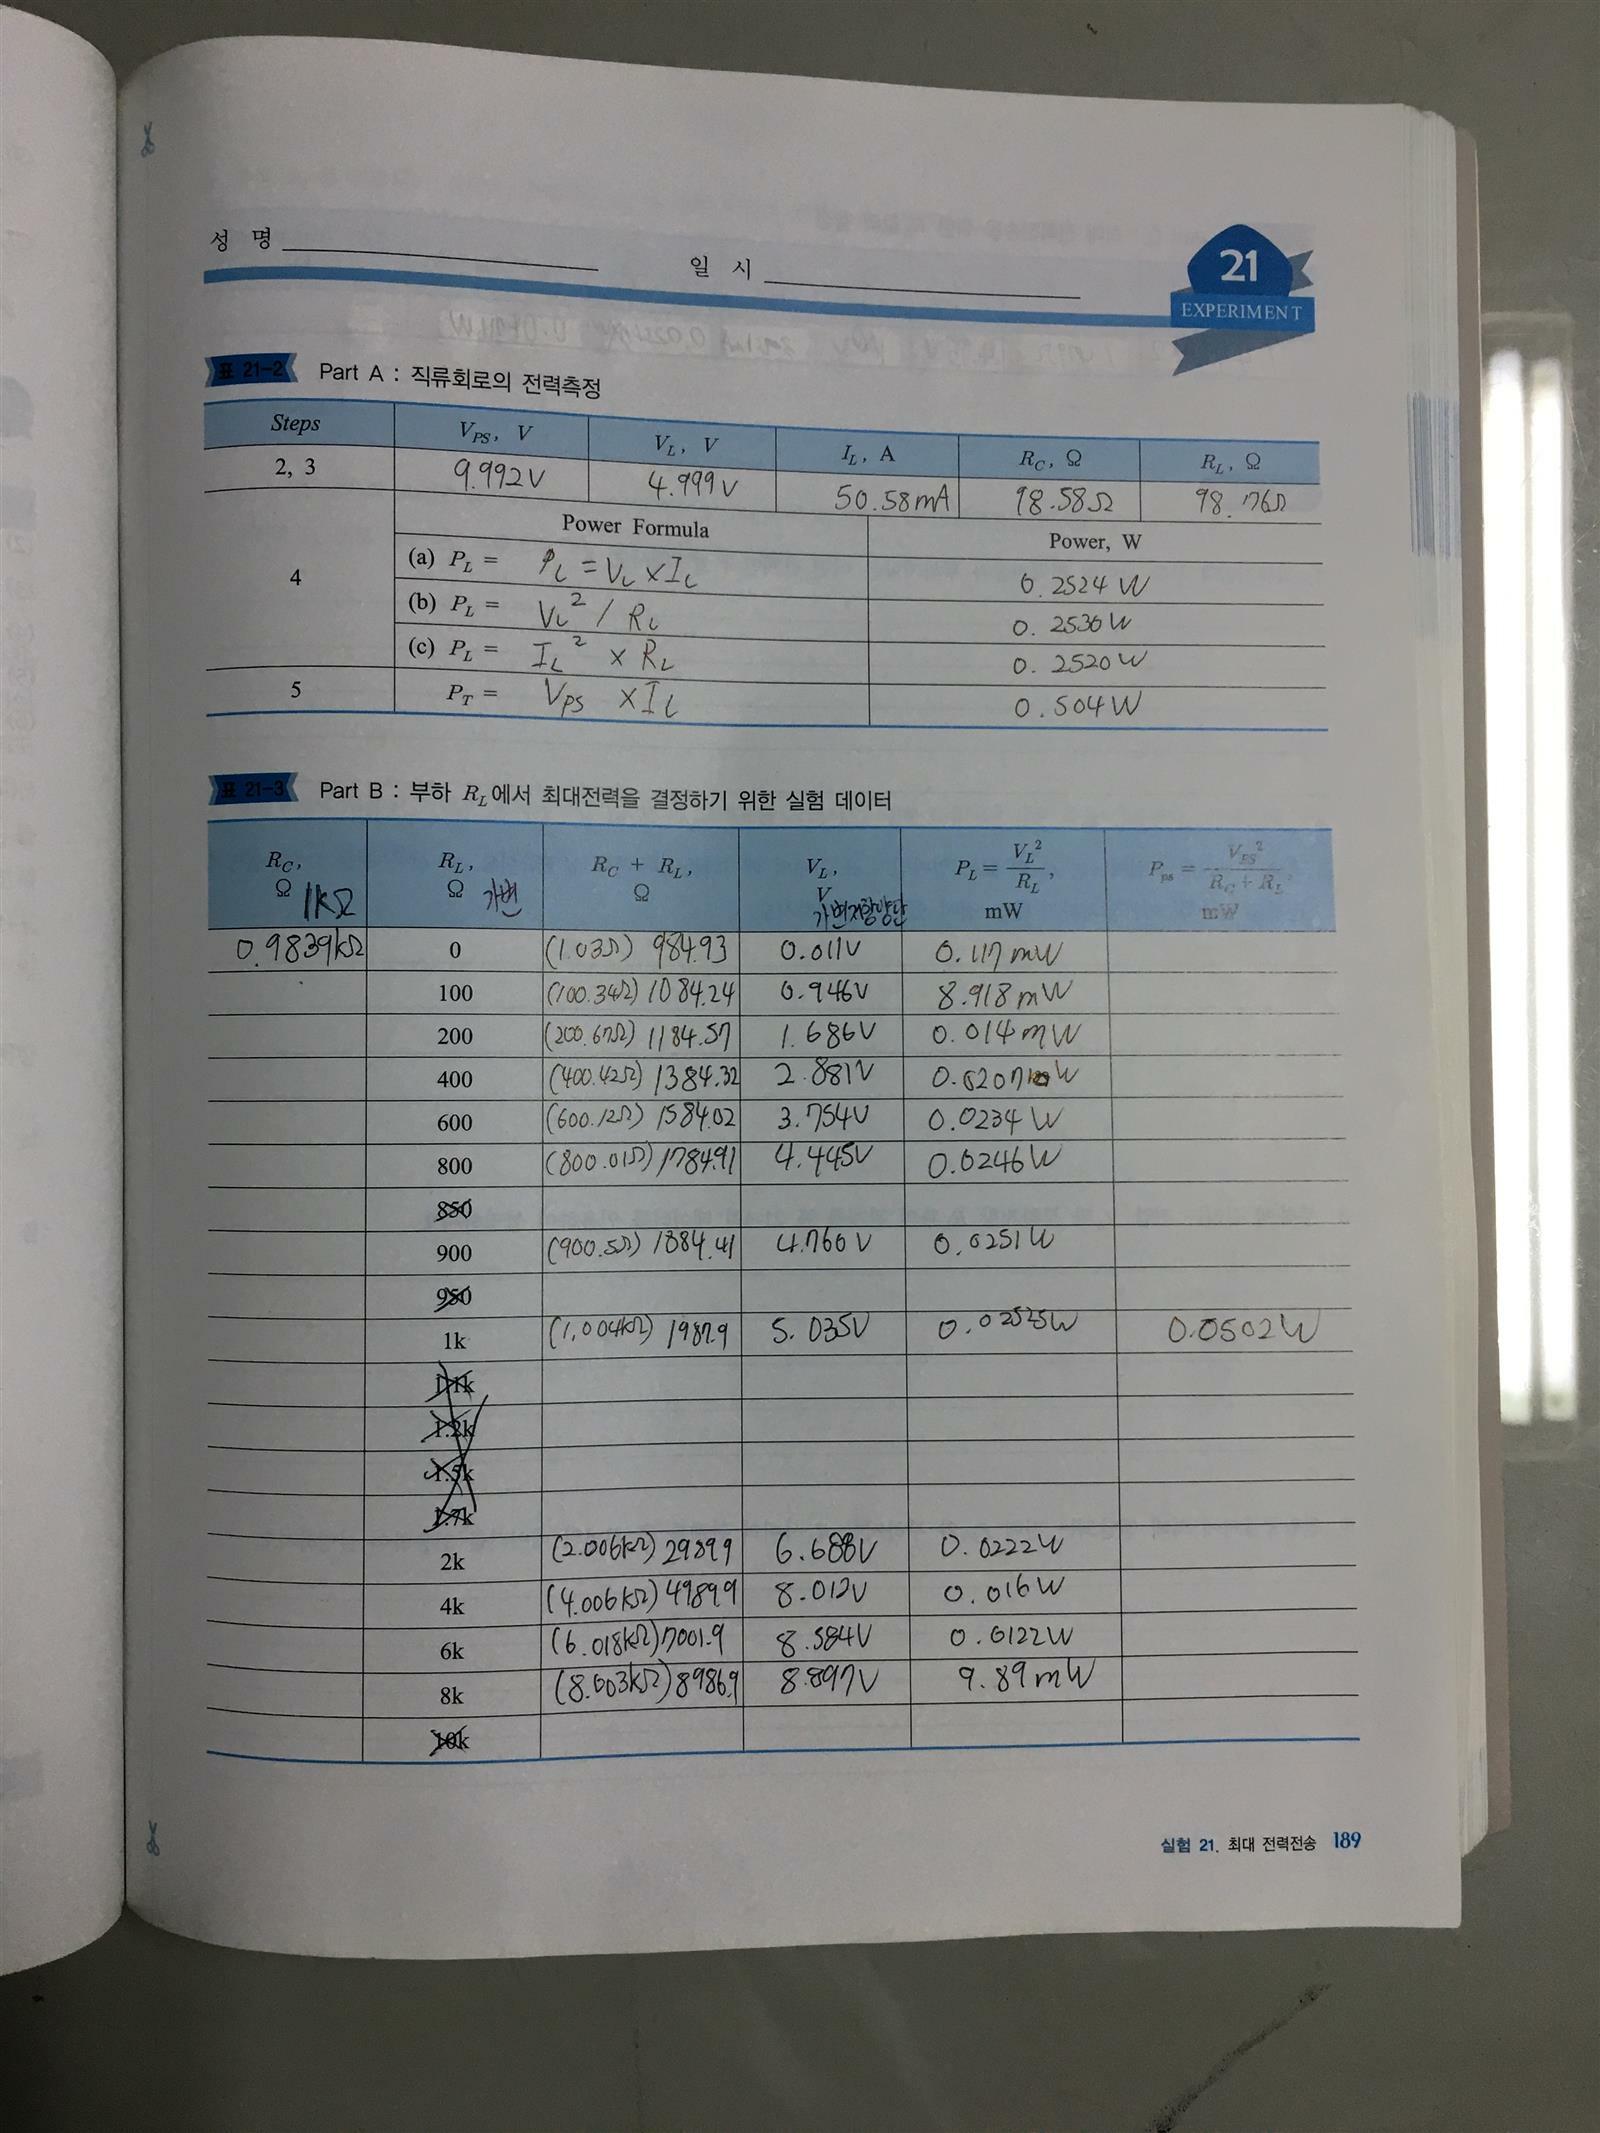 성 명
일 시
21
EXPERIMENT
표 21-2 Part A : 직류회로의 전력측정
Steps V_PS, V V_L, V I_L, A R_C, Ω R_L, Ω
2, 3 9.992V 4.999V 50.58mA 98.58Ω 98.76Ω
4 Power Formula Power, W
(a) P_L = P_L = V_L × I_L 0.2524 W
(b) P_L = V_L² / R_L 0.2530 W
(c) P_L = I_L² × R_L 0.2520 W
5 P_T = V_PS × I_L 0.504 W
표 21-3 Part B : 부하 R_L에서 최대전력을 결정하기 위한 실험 데이터
R_C, Ω 1kΩ R_L, Ω 가변 R_C + R_L, Ω V_L, V 가변저항양단 P_L = V_L²/R_L, mW P_ps = V_PS²/R_C + R_L, mW
0.9839kΩ 0 (1.03Ω) 984.93 0.011V 0.117 mW
100 (100.34Ω) 1084.24 0.946V 8.918 mW
200 (200.67Ω) 1184.57 1.686V 0.014 mW
400 (400.42Ω) 1384.32 2.881V 0.0207 W
600 (600.12Ω) 1584.02 3.754V 0.0234 W
800 (800.01Ω) 1784.91 4.445V 0.0246 W
850
900 (900.5Ω) 1884.41 4.760V 0.0251 W
950
1k (1.004kΩ) 1987.9 5.035V 0.02525W 0.0502W
1.1k
1.2k
1.5k
1.7k
2k (2.006kΩ) 2989.9 6.688V 0.0222W
4k (4.006kΩ) 4989.9 8.012V 0.016W
6k (6.018kΩ) 7001.9 8.584V 0.0122W
8k (8.003kΩ) 8986.9 8.897V 9.89mW
10k
실험 21. 최대 전력전송 189